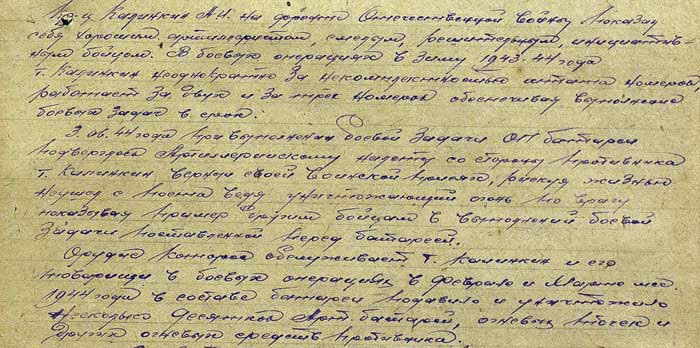 Кр-ц Калинкин А.И. на фронте Отечественной войны показал
себя хорошим артиллеристом, смелым, решительным, инициатив-
ным бойцом. В боевых операциях в зиму 1943-44 года
т. Калинкин неоднократно за некомплектностью штата номеров,
работает за двух и за трех номеров обеспечивая выполнение
боевых задач в срок.
3.04.44 года при выполнении боевой задачи ОП батареи
подверглась артиллерийскому налету со стороны противника
т. Калинкин верный своей воинской присяге, рискуя жизнью
не ушел с поста ведя уничтожающий огонь по врагу
показывая пример другим бойцам в выполнении боевой
задачи поставленной перед батареей.
Орудие которое обслуживает т. Калинкин и его
товарищи в боевых операциях в феврале и марте мес.
1944 года в составе батареи подавило и уничтожило
несколько десятков Арт. батарей, огневых точек и
других огневых средств противника.